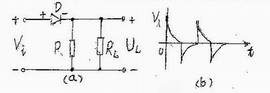 + + D - +
Vi R RL UL
- -
(a)
Vi
0 t
(b)